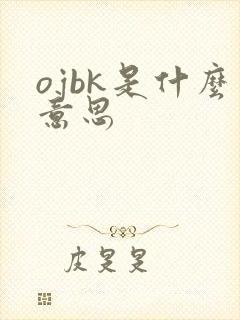 ojbk是什麼
意思
皮